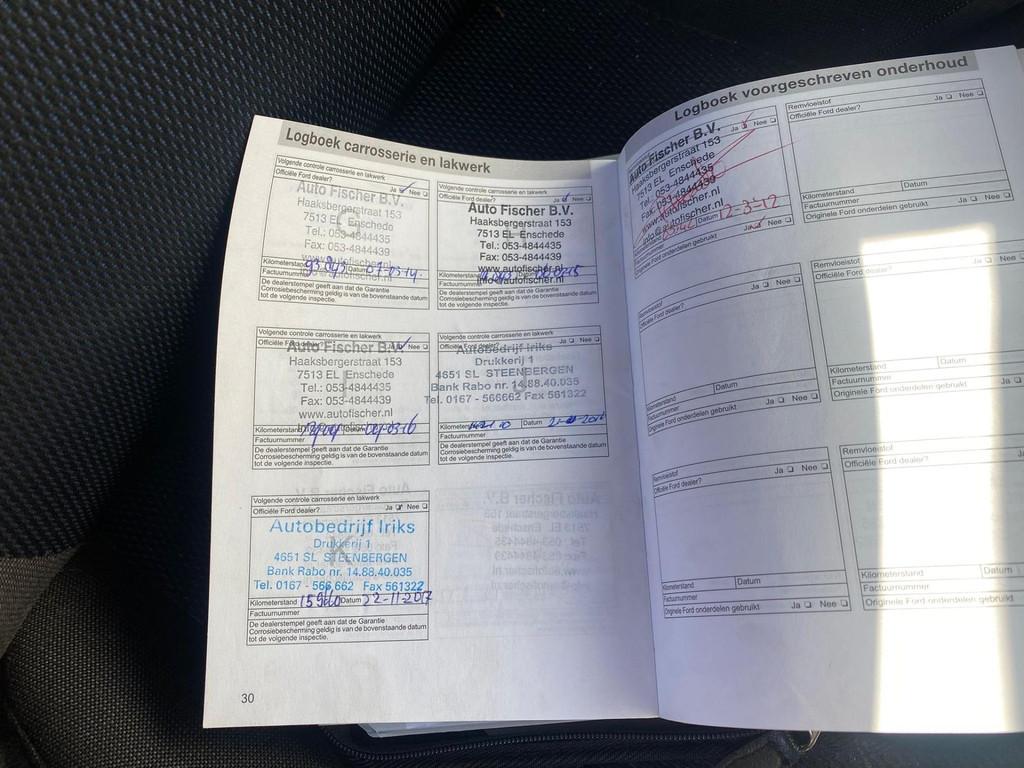 Logboek carrosserie en lakwerk
Volgende controle carrosserie en lakwerk
Officiële Ford dealer? Ja Nee
Auto Fischer B.V.
Haaksbergerstraat 153
7513 EL Enschede
Tel.: 053-4844435
Fax: 053-4844439
www.autofischer.nl
Kilometerstand Datum
Factuurnummer
De dealerstempel geeft aan dat de Garantie
Corrosiebescherming geldig is van de bovenstaande datum
tot de volgende inspectie.
Volgende controle carrosserie en lakwerk
Officiële Ford dealer? Ja Nee
Auto Fischer B.V.
Haaksbergerstraat 153
7513 EL Enschede
Tel.: 053-4844435
Fax: 053-4844439
www.autofischer.nl
info@autofischer.nl
Kilometerstand
Factuurnummer
De dealerstempel geeft aan dat de Garantie
Corrosiebescherming geldig is van de bovenstaande datum
tot de volgende inspectie.
Volgende controle carrosserie en lakwerk
Officiële Ford dealer? Ja Nee
Auto Fischer B.V.
Haaksbergerstraat 153
7513 EL Enschede
Tel.: 053-4844435
Fax: 053-4844439
www.autofischer.nl
Kilometerstand
Factuurnummer
De dealerstempel geeft aan dat de Garantie
Corrosiebescherming geldig is van de bovenstaande datum
tot de volgende inspectie.
Volgende controle carrosserie en lakwerk
Officiële Ford dealer? Ja Nee
Autobedrijf Iriks
Drukkerij 1
4651 SL STEENBERGEN
Bank Rabo nr. 14.88.40.035
Tel. 0167 - 566662 Fax 561322
Kilometerstand Datum
Factuurnummer
De dealerstempel geeft aan dat de Garantie
Corrosiebescherming geldig is van de bovenstaande datum
tot de volgende inspectie.
Volgende controle carrosserie en lakwerk
Officiële Ford dealer? Ja Nee
Autobedrijf Iriks
K
Drukkerij 1
4651 SL STEENBERGEN
Bank Rabo nr. 14.88.40.035
Tel. 0167 - 566 662 Fax 561322
Kilometerstand Datum 22-11-2017
Factuurnummer
De dealerstempel geeft aan dat de Garantie
Corrosiebescherming geldig is van de bovenstaande datum
tot de volgende inspectie.
30
Logboek voorgeschreven onderhoud
Auto Fischer B.V. Ja Nee
Haaksbergerstraat 153
7513 EL Enschede
Tel.: 053-4844435
Fax: 053-4844439
www.autofischer.nl
info@autofischer.nl
Datum 12-3-12
Factuurnummer
Originele Ford onderdelen gebruikt Ja Nee
Remvloeistof
Officiële Ford dealer? Ja Nee
Kilometerstand Datum
Factuurnummer
Originele Ford onderdelen gebruikt Ja Nee
Remvloeistof
Officiële Ford dealer? Ja Nee
Kilometerstand Datum
Factuurnummer
Originele Ford onderdelen gebruikt Ja Nee
Remvloeistof
Officiële Ford dealer?
Kilometerstand Datum
Factuurnummer
Originele Ford onderdelen gebruikt Ja
Remvloeistof
Officiële Ford dealer? Ja Nee
Kilometerstand Datum
Factuurnummer
Originele Ford onderdelen gebruikt Ja Nee
Remvloeistof
Officiële Ford dealer?
Kilometerstand Datum
Factuurnummer
Originele Ford onderdelen gebruikt Ja